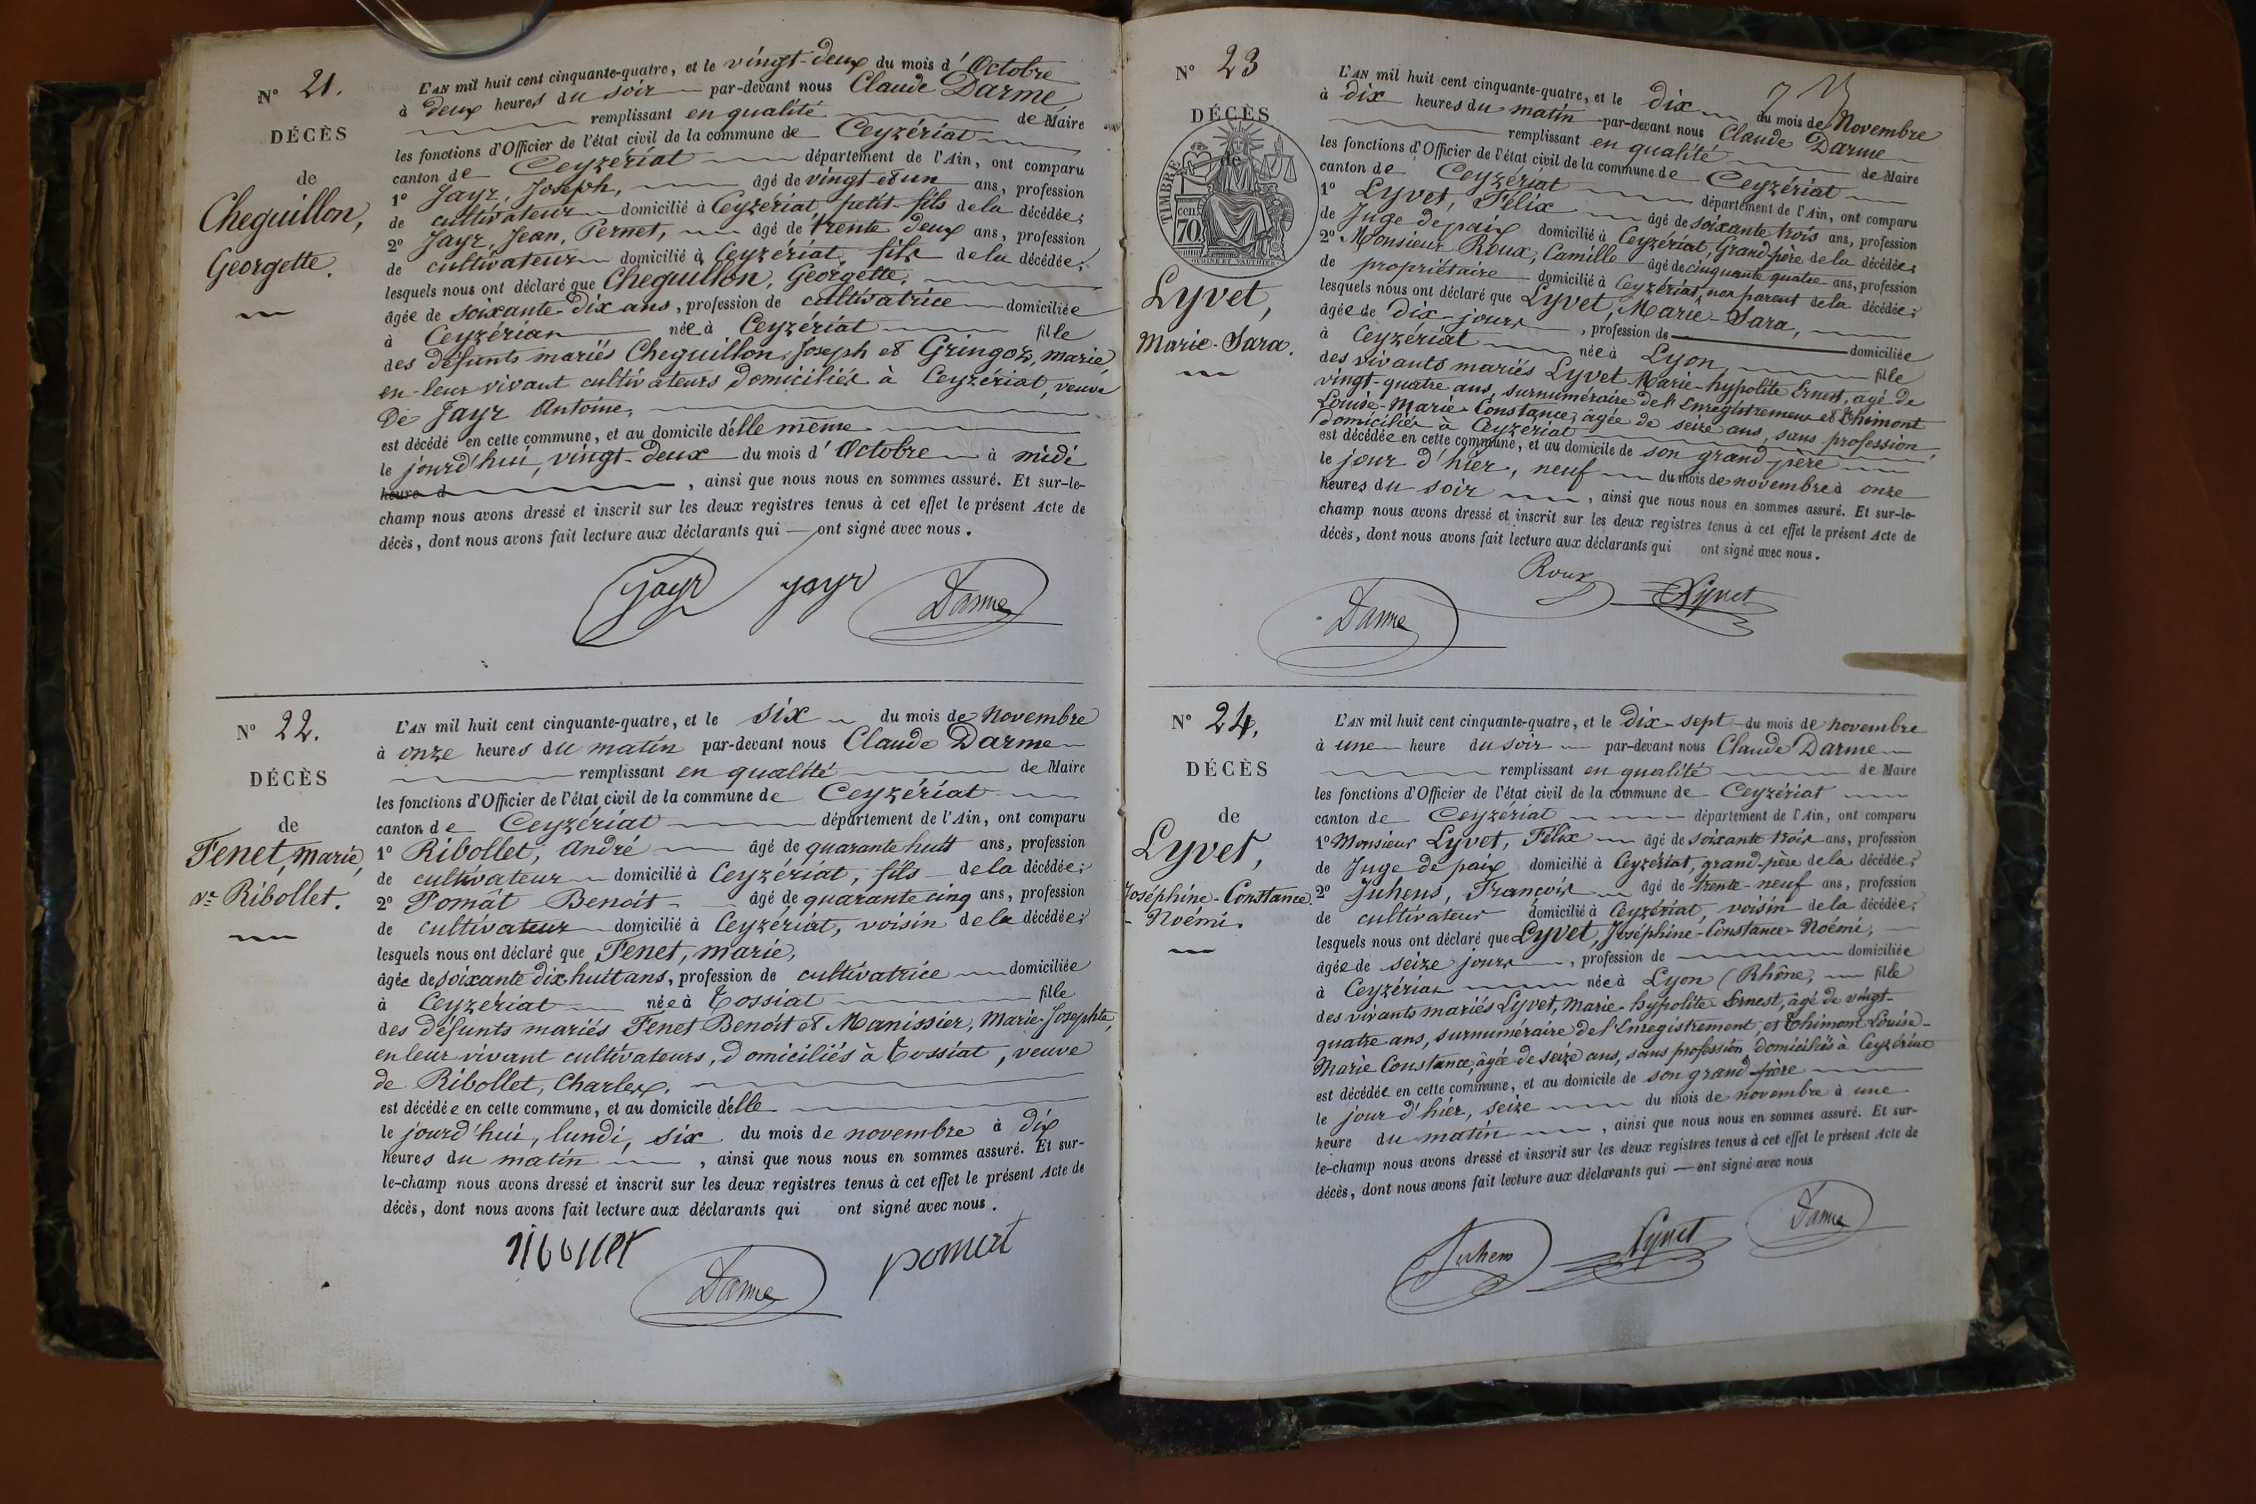 N° 21.
DÉCÈS
de
Cheguillon,
Georgette.
L'AN mil huit cent cinquante-quatre, et le vingt-deux du mois d'Octobre
à deux heures du soir par-devant nous Claude Darme,
remplissant en qualité de Maire
les fonctions d'Officier de l'état civil de la commune de Ceyzériat
canton de Ceyzériat département de l'Ain, ont comparu
1° Jayr, Joseph, âgé de vingt et un ans, profession
de cultivateur domicilié à Ceyzériat petit-fils de la décédée;
2° Jayr, Jean, Pernet, âgé de trente deux ans, profession
de cultivateur domicilié à Ceyzériat, fils de la décédée;
lesquels nous ont déclaré que Cheguillon, Georgette,
âgée de soixante-dix ans, profession de cultivatrice domiciliée
à Ceyzérian née à Ceyzériat fille
des défunts mariés Cheguillon, Joseph et Gringoz, marie
en leur vivant cultivateurs domiciliés à Ceyzériat, veuve
De Jayr Antoine,
est décédé en cette commune, et au domicile délle même
le jourd'hui, vingt-deux du mois d'Octobre à midi
heure d , ainsi que nous nous en sommes assuré. Et sur-le-
champ nous avons dressé et inscrit sur les deux registres tenus à cet effet le présent Acte de
décès, dont nous avons fait lecture aux déclarants qui ont signé avec nous.
Jayr jayr Darme
N° 22.
DÉCÈS
de
Fenet, marie,
Ve Ribollet.
L'AN mil huit cent cinquante-quatre, et le six du mois de novembre
à onze heures du matin par-devant nous Claude Darme
remplissant en qualité de Maire
les fonctions d'Officier de l'état civil de la commune de Ceyzériat
canton de Ceyzériat département de l'Ain, ont comparu
1° Ribollet, André âgé de quarante huit ans, profession
de cultivateur domicilié à Ceyzériat, fils de la décédée;
2° Pomat Benoit âgé de quarante cinq ans, profession
de cultivateur domicilié à Ceyzériat, voisin de la décédée;
lesquels nous ont déclaré que Fenet, marie,
âgée de soixante dix huit ans, profession de cultivatrice domiciliée
à Ceyzériat née à Tossiat fille
des défunts mariés Fenet Benoit et Manissier, Marie-Josephte,
en leur vivant cultivateurs, domiciliés à Tossiat, veuve
de Ribollet, Charles,
est décédée en cette commune, et au domicile délle
le jourd'hui, lundi, six du mois de novembre à dix
heures du matin , ainsi que nous nous en sommes assuré. Et sur-
le-champ nous avons dressé et inscrit sur les deux registres tenus à cet effet le présent Acte de
décès, dont nous avons fait lecture aux déclarants qui ont signé avec nous.
ribollet Darme pomat
N° 23
DÉCÈS
de
TIMBRE
cen. 70
Lyvet,
Marie-Sara.
L'AN mil huit cent cinquante-quatre, et le dix du mois de Novembre
à dix heures du matin par-devant nous Claude Darme
remplissant en qualité de Maire
les fonctions d'Officier de l'état civil de la commune de Ceyzériat
canton de Ceyzériat département de l'Ain, ont comparu
1° Lyvet, Félix âgé de soixante trois ans, profession
de Juge de paix domicilié à Ceyzériat, Grand père de la décédée;
2° Monsieur Roux, Camille âgé de cinquante quatre ans, profession
de propriétaire domicilié à Ceyzériat, non parent de la décédée;
lesquels nous ont déclaré que Lyvet, Marie-Sara,
âgée de dix jours , profession de domiciliée
à Ceyzériat née à Lyon fille
des vivants mariés Lyvet Marie-hypolite Ernest, âgé de
vingt-quatre ans, surnuméraire de l'Enregistrement et Thimont
Louise-Marie-Constance, âgée de seize ans, sans profession,
Domiciliés à Ceyzériat
est décédée en cette commune, et au domicile de son grand-père
le jour d'hier, neuf du mois de novembre à onze
heures du soir , ainsi que nous nous en sommes assuré. Et sur-le-
champ nous avons dressé et inscrit sur les deux registres tenus à cet effet le présent Acte de
décès, dont nous avons fait lecture aux déclarants qui ont signé avec nous.
Roux Lyvet
Darme
N° 24.
DÉCÈS
de
Lyvet,
Joséphine-Constance
-Noémi.
L'AN mil huit cent cinquante-quatre, et le dix-sept du mois de novembre
à une heure du soir par-devant nous Claude Darme
remplissant en qualité de Maire
les fonctions d'Officier de l'état civil de la commune de Ceyzériat
canton de Ceyzériat département de l'Ain, ont comparu
1° Monsieur Lyvet, Félix âgé de soixante trois ans, profession
de Juge de paix domicilié à Ceyzériat, grand-père de la décédée;
2° Juhens, François âgé de trente-neuf ans, profession
de cultivateur domicilié à Ceyzériat, voisin de la décédée;
lesquels nous ont déclaré que Lyvet, Joséphine-Constance-Noémi,
âgée de seize jours , profession de domiciliée
à Ceyzérian née à Lyon (Rhône, fille
des vivants mariés Lyvet, Marie-hypolite Ernest, âgé de vingt-
quatre ans, surnuméraire de l'Enregistrement, et Thimont Louise-
Marie Constance, âgée de seize ans, sans profession, domiciliés à Ceyzériat
est décédée en cette commune, et au domicile de son grand-père
le jour d'hier, seize du mois de novembre à une
heure du matin , ainsi que nous nous en sommes assuré. Et sur-
le-champ nous avons dressé et inscrit sur les deux registres tenus à cet effet le présent Acte de
décès, dont nous avons fait lecture aux déclarants qui ont signé avec nous
Juhem Lyvet Darme